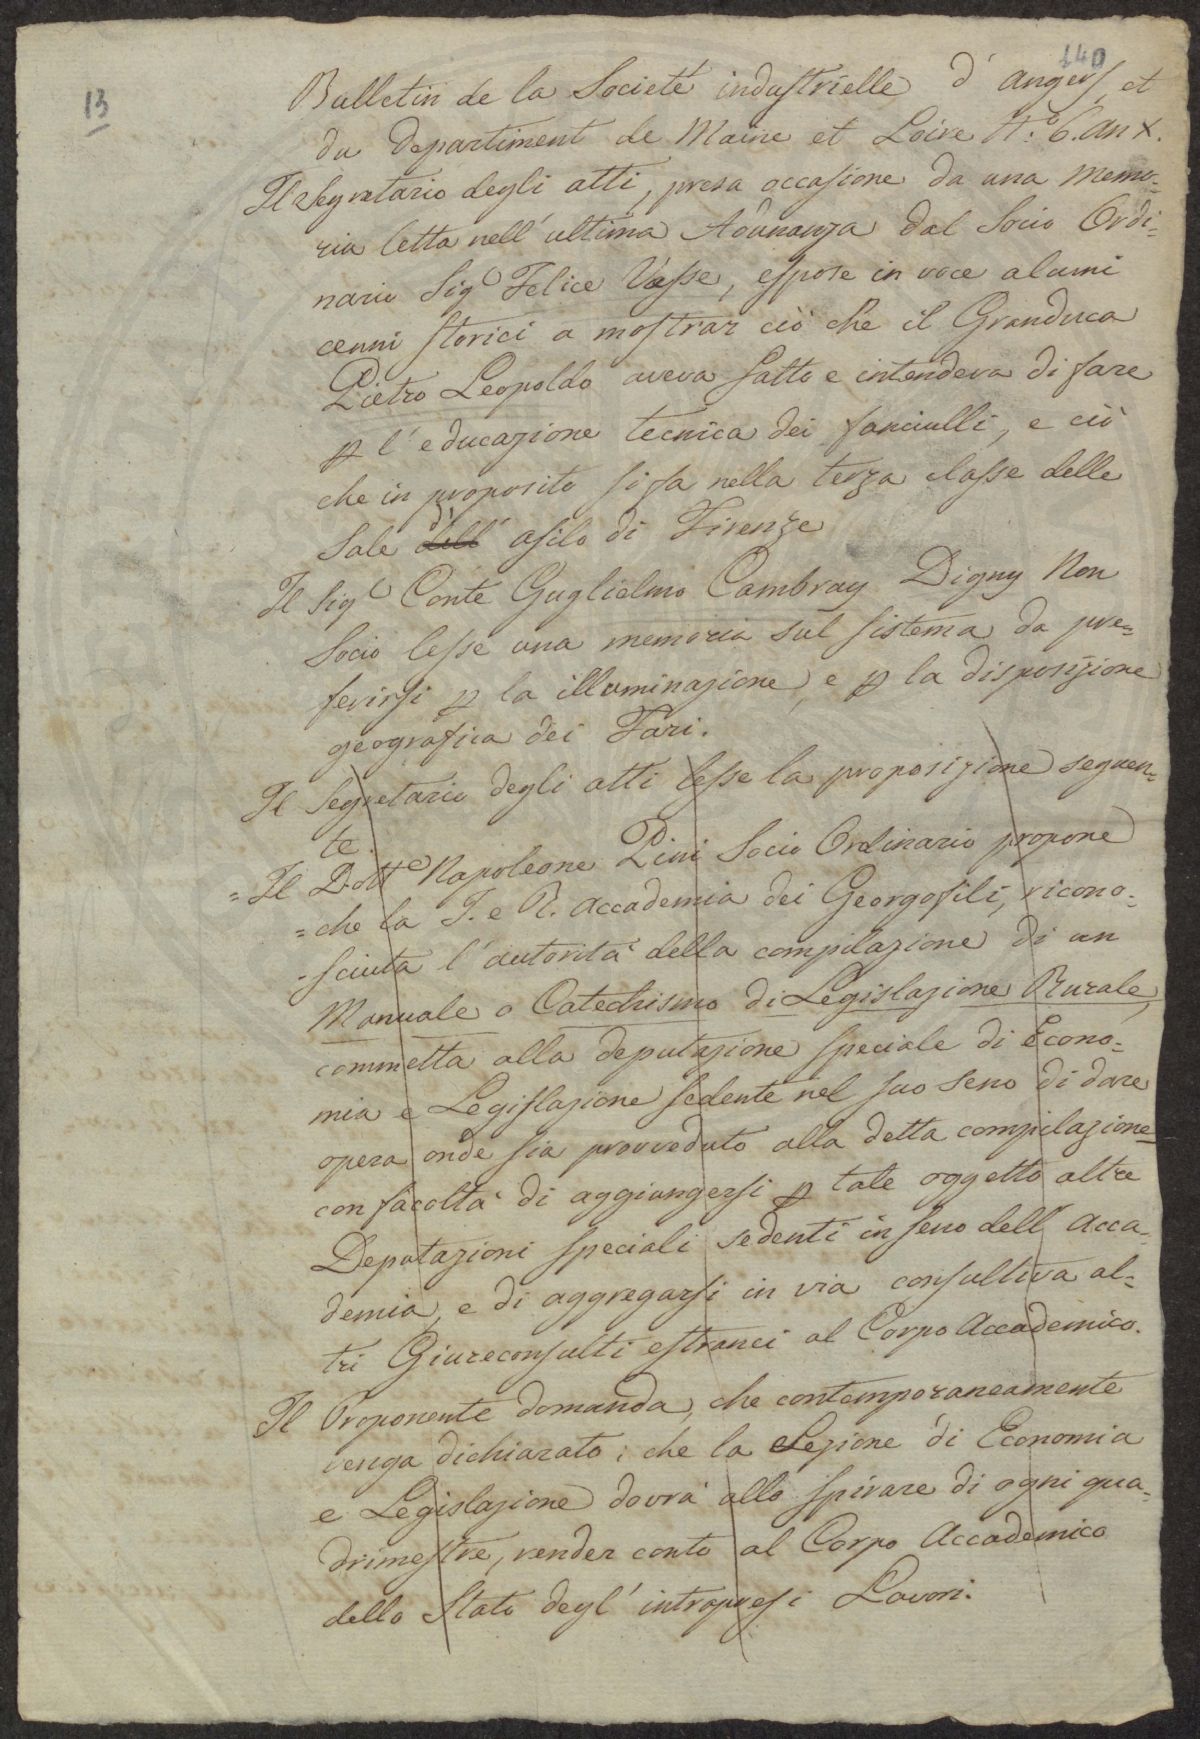 140
13
Bulletin de la Societé industrielle d'Angers, et
du Departiment de Maine et Loire N.º 6. An X.
Il Segretario degli atti, presa occasione da una Memo=
ria letta nell'ultima Adunanza dal Socio Ordi=
nario Sigʳ Felice Vasse, espose in voce alcuni
cenni storici a mostrar ciò che il Granduca
Pietro Leopoldo aveva fatto e intendeva di fare
p l'educazione tecnica dei fanciulli, e ciò
che in proposito si fa nella terza classe delle
Sale dell' d' asilo di Firenze
Il Sigʳ Conte Guglielmo Cambray Digny Non
Socio lesse una memoria sul sistema da pre=
ferirsi p la illuminazione, e p la disposizione
geografica dei Fari.
Il Segretario degli atti lesse la proposizione seguen=
te.
= Il Dottᵉ Napoleone Pini Socio Ordinario propone
= che la I. e R. Accademia dei Georgofili, ricono=
- sciuta l'autorità della compilazione di un
Manuale o Catechismo di Legislazione Rurale,
commetta alla deputazione speciale di Econo=
mia e Legislazione sedente nel suo seno di dare
opera onde sia provveduto alla detta compilazione
con facoltà di aggiungersi p tale oggetto altre
Deputazioni speciali sedenti in seno dell'Acca=
demia, e di aggregarsi in via consultiva al=
tri Giureconsulti estranei al Corpo Accademico.
Il Proponente domanda, che contemporaneamente
venga dichiarato; che la Sezione di Economia
e Legislazione dovrà allo spirare di ogni qua=
drimestre, render conto al Corpo Accademico
dello Stato degl'intrapresi Lavori.